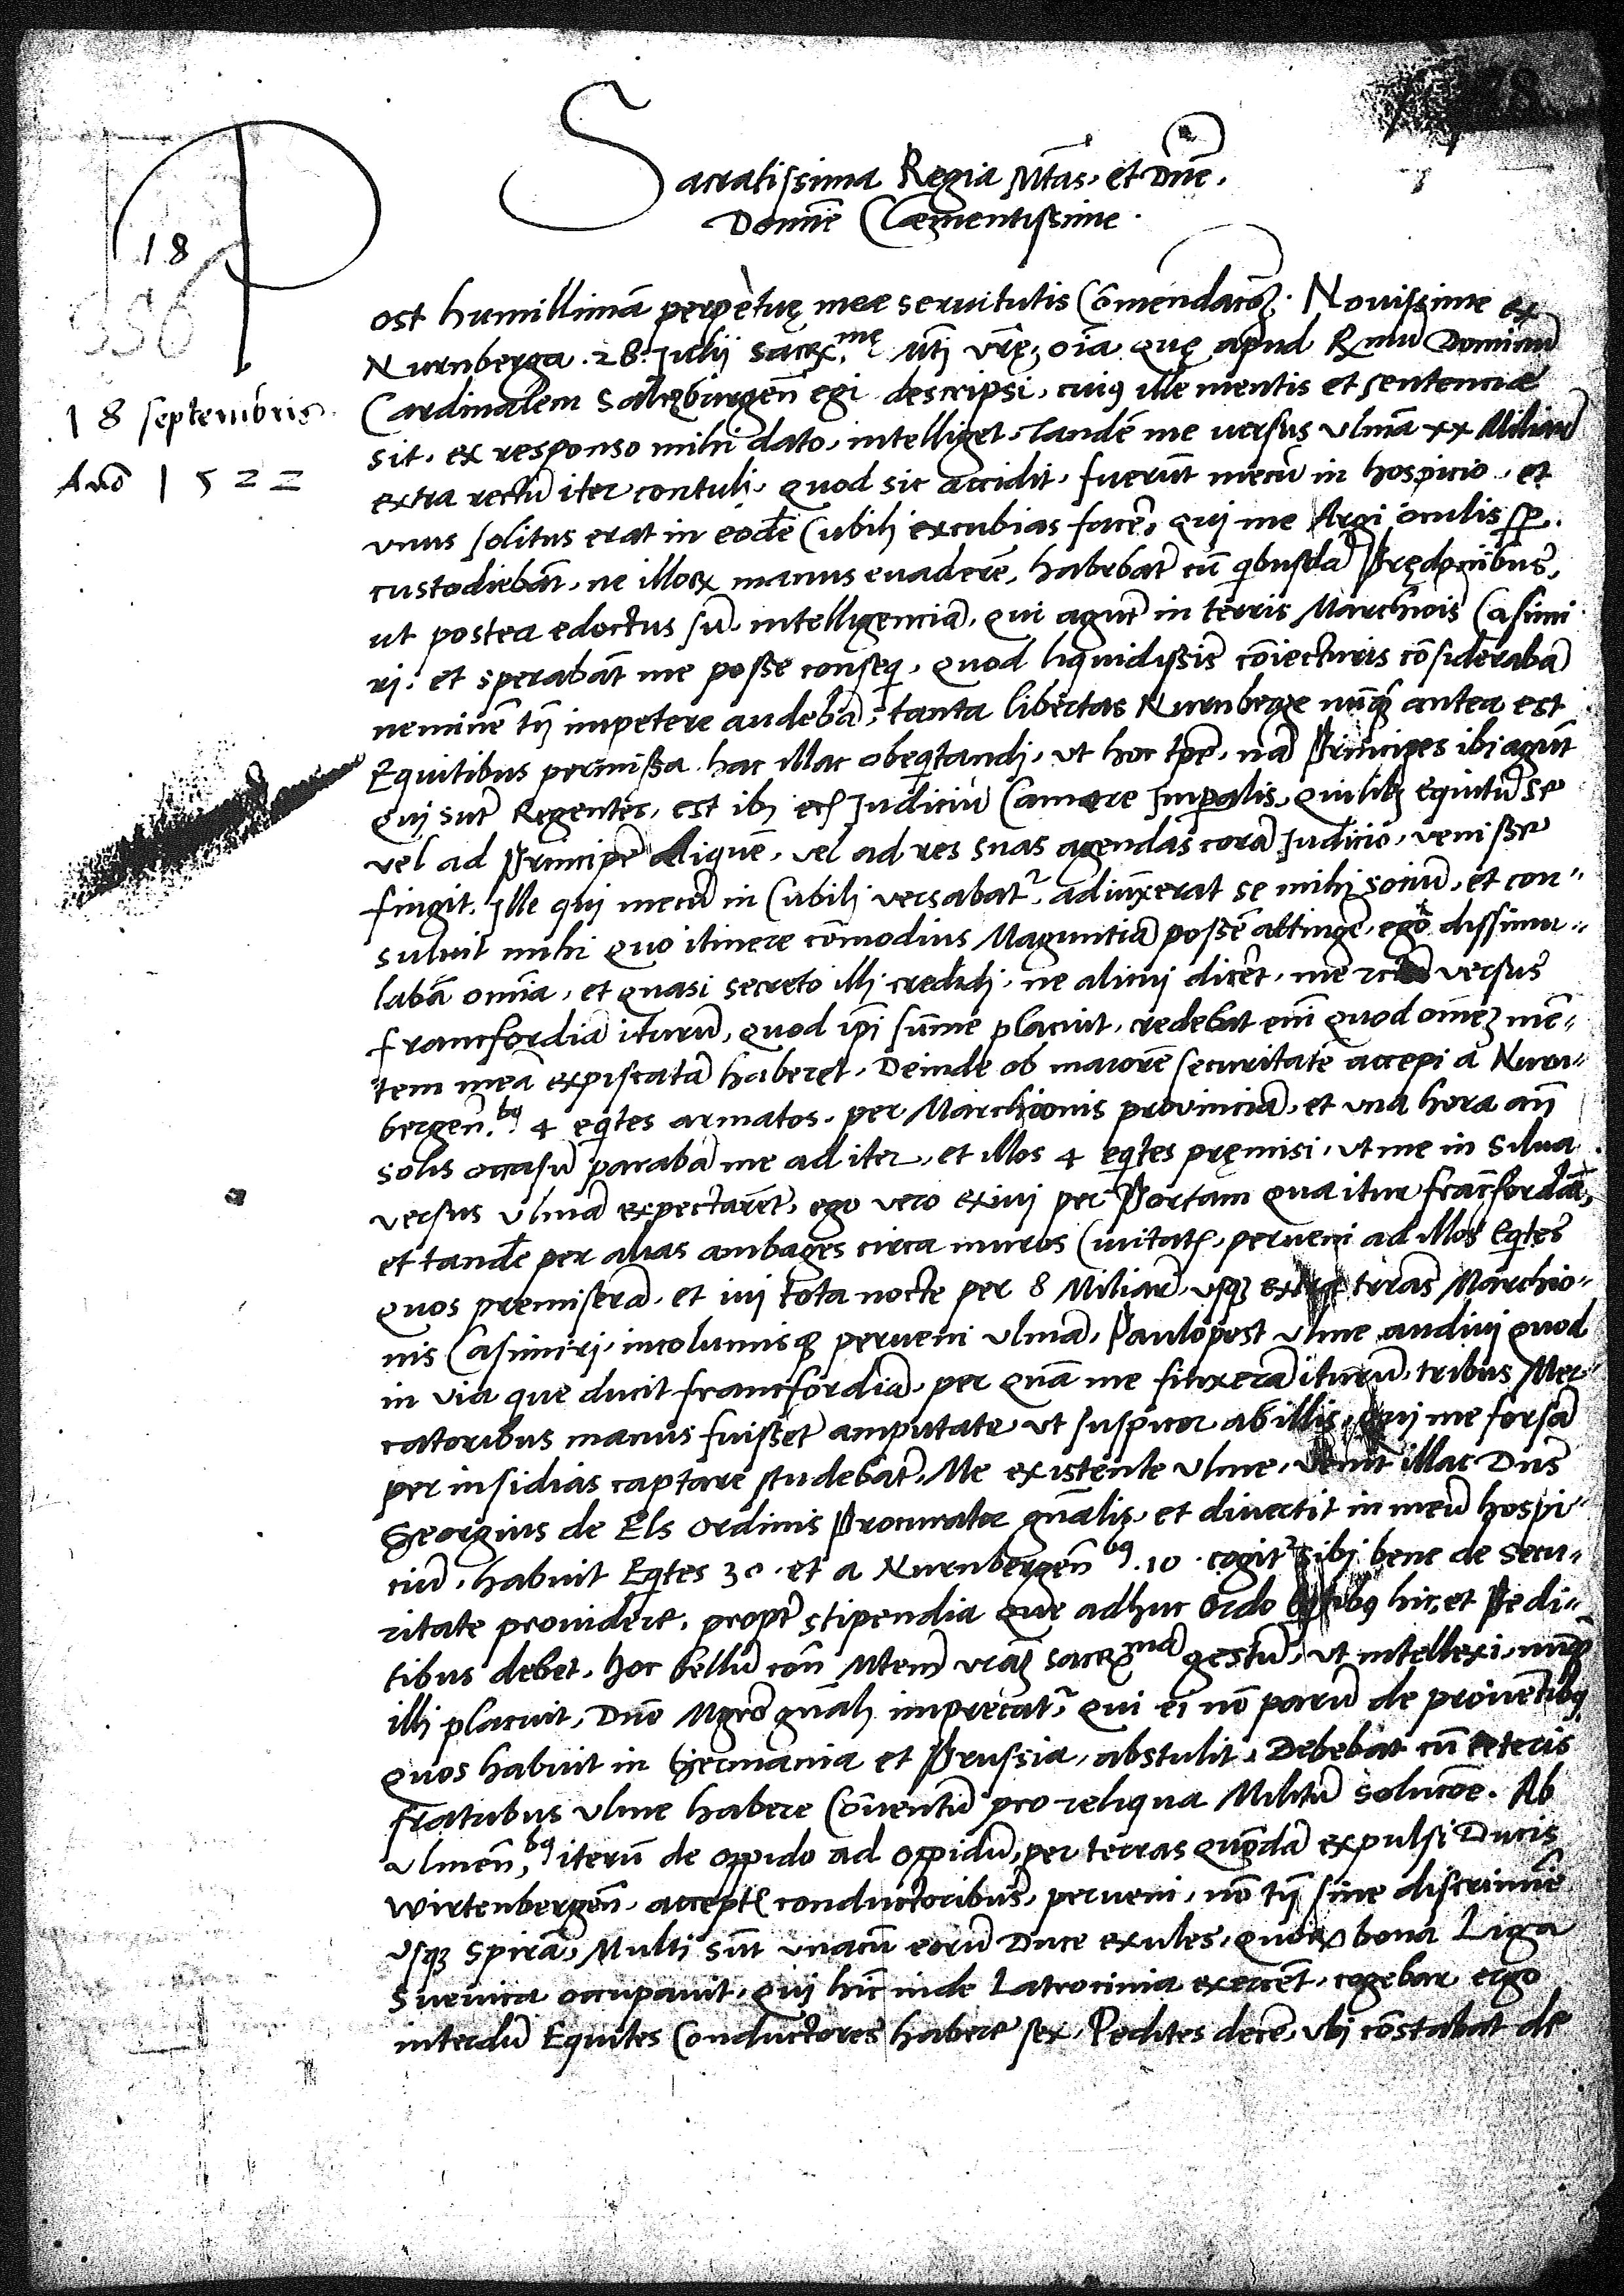 78
Sacratissima Regia Mtas. et Dne.
Domine Clementissime.
18
356
18 septembris
Anno 1522
Post humillimā perpetuę mee seruitutis Cōmendacōꝫ. Nouissime ex
Nurnberga . 28. Julij Sacrꝫ.mę Mti vrę, oīa quę apud Rmū Dominū
Cardinalem Saltzburgeñ egi descripsi, cuiꝰ ille mentis et sentencie
sit. ex responso mihi dato, intelliget. Tandē me versus vlmā xx Miliarī
extra rectū iter contuli. quod sic accidit. fuerūt mecū in hospicio et
vnus solitus erat in eodē Cubili excubias facē, qui me Argi oculis sp.
custodiebāt. ne illorꝫ manus euaderē, habebāt cū qibusdā Prędonibus,
ut postea edoctus sū. intelligenciā, qui agūt in terris Marchiōis Casimi
rj. et sperabāt me posse conseqi. quod liquidissīs cōiecturis cōsiderabā
neminē tñ impetere audebā, tanta libertas Nurnberge nūqꝫ antea est
Equitibus permissa hac illac obeqitandj, vt hoc tpē, nā Principes ibi agūt
qui sūt Regentes, est ibj ecī Judiciū Camere Imperialis, quilibꝫ equitū se
vel ad Principē Aliquē, vel ad res suas agendas corā Judicio, venisse
fingit. Ille qui mecū in Cubili versabatr, adiūxerat se mihj sociū, et con-
suluit mihi quo itinere cōmodius Maguntiā possē attingē, ego dissimu-
labā omīa, et quasi secreto illi credidj, ne alicui dicēt, me versus
francfordiā iturū, quod ipī sūme placuit, credebat eīm quod omēꝫ mē-
tem meā expiscatā haberet. Deinde ob maiorē securitatē accepi a Nurn-
bergeñ.bꝰ 4 eqites armatos. per Marchionis prouinciā, et vna hora añ
solis occasū parabā me ad iter, et illos 4 eqites pręmisi, vt me in silua
versus vlmā expectarēt, ego vero exiui per Portam qua itur fracfordiā,
et tandē per alias ambages circa muros Ciuitatꝭ, perueni ad illos Eqites
quos premiserā, et iui tota nocte per 8 Miliarīa vsqꝫ extra terras Marchio-
nis Casimirj, incolumisqꝫ perueni vlmā, Paulopost vlme audiui quod
in via que ducit francfordiā, per quā me finxerā iturū, tribus Mer-
catoribus manus fuissēt amputate, vt suspicor ab illis, qui me forsā
per insidias captare studebāt, Me existente vlme, venit illac Dns
Georgius de Els ordinis Procurator gnālis, et diuertit in meū hospi-
ciū, habuit Eqites 30. et a Nurnbergeñbꝰ .10. cogitr sibj bene de secu-
ritate prouidere, propt stipendia que adhuc Ordo Eqitibꝰ hic, et Pedi-
tibus debet, hoc bellū con Mtem vrāꝫ Sacrꝫmā gestū, vt intellexi, nūqꝫ
illi placuit, Dno Mgro gnāli imprecatr, qui ei nō parū de prouētibꝰ,
quos habuit in Germania et Prussia, abstulit, Debebat cū ceteris
fratribus vlme habere Cōuentū pro reliqua Militū solucōe. Ab
vlmeñ,bꝰ iterū de oppido ad oppidū, per terras quōdā expulsi Ducis
wirtenbergeñ. acceptꝭ conductoribus, perueni, nō tñ sine discrimīe
vsqꝫ Spirā, Multi sūt vnacū eorū Duce exules, quorꝫ bona Liga
Sueuica occupauit, qui hīc inde Latrocinia exercēt, cogebar ergo
interdū Equites Conductores habere sex, Pedites decē, vbi cōstabat de